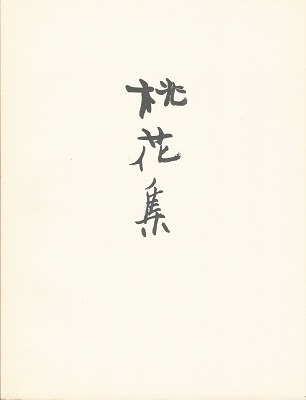 桃花集